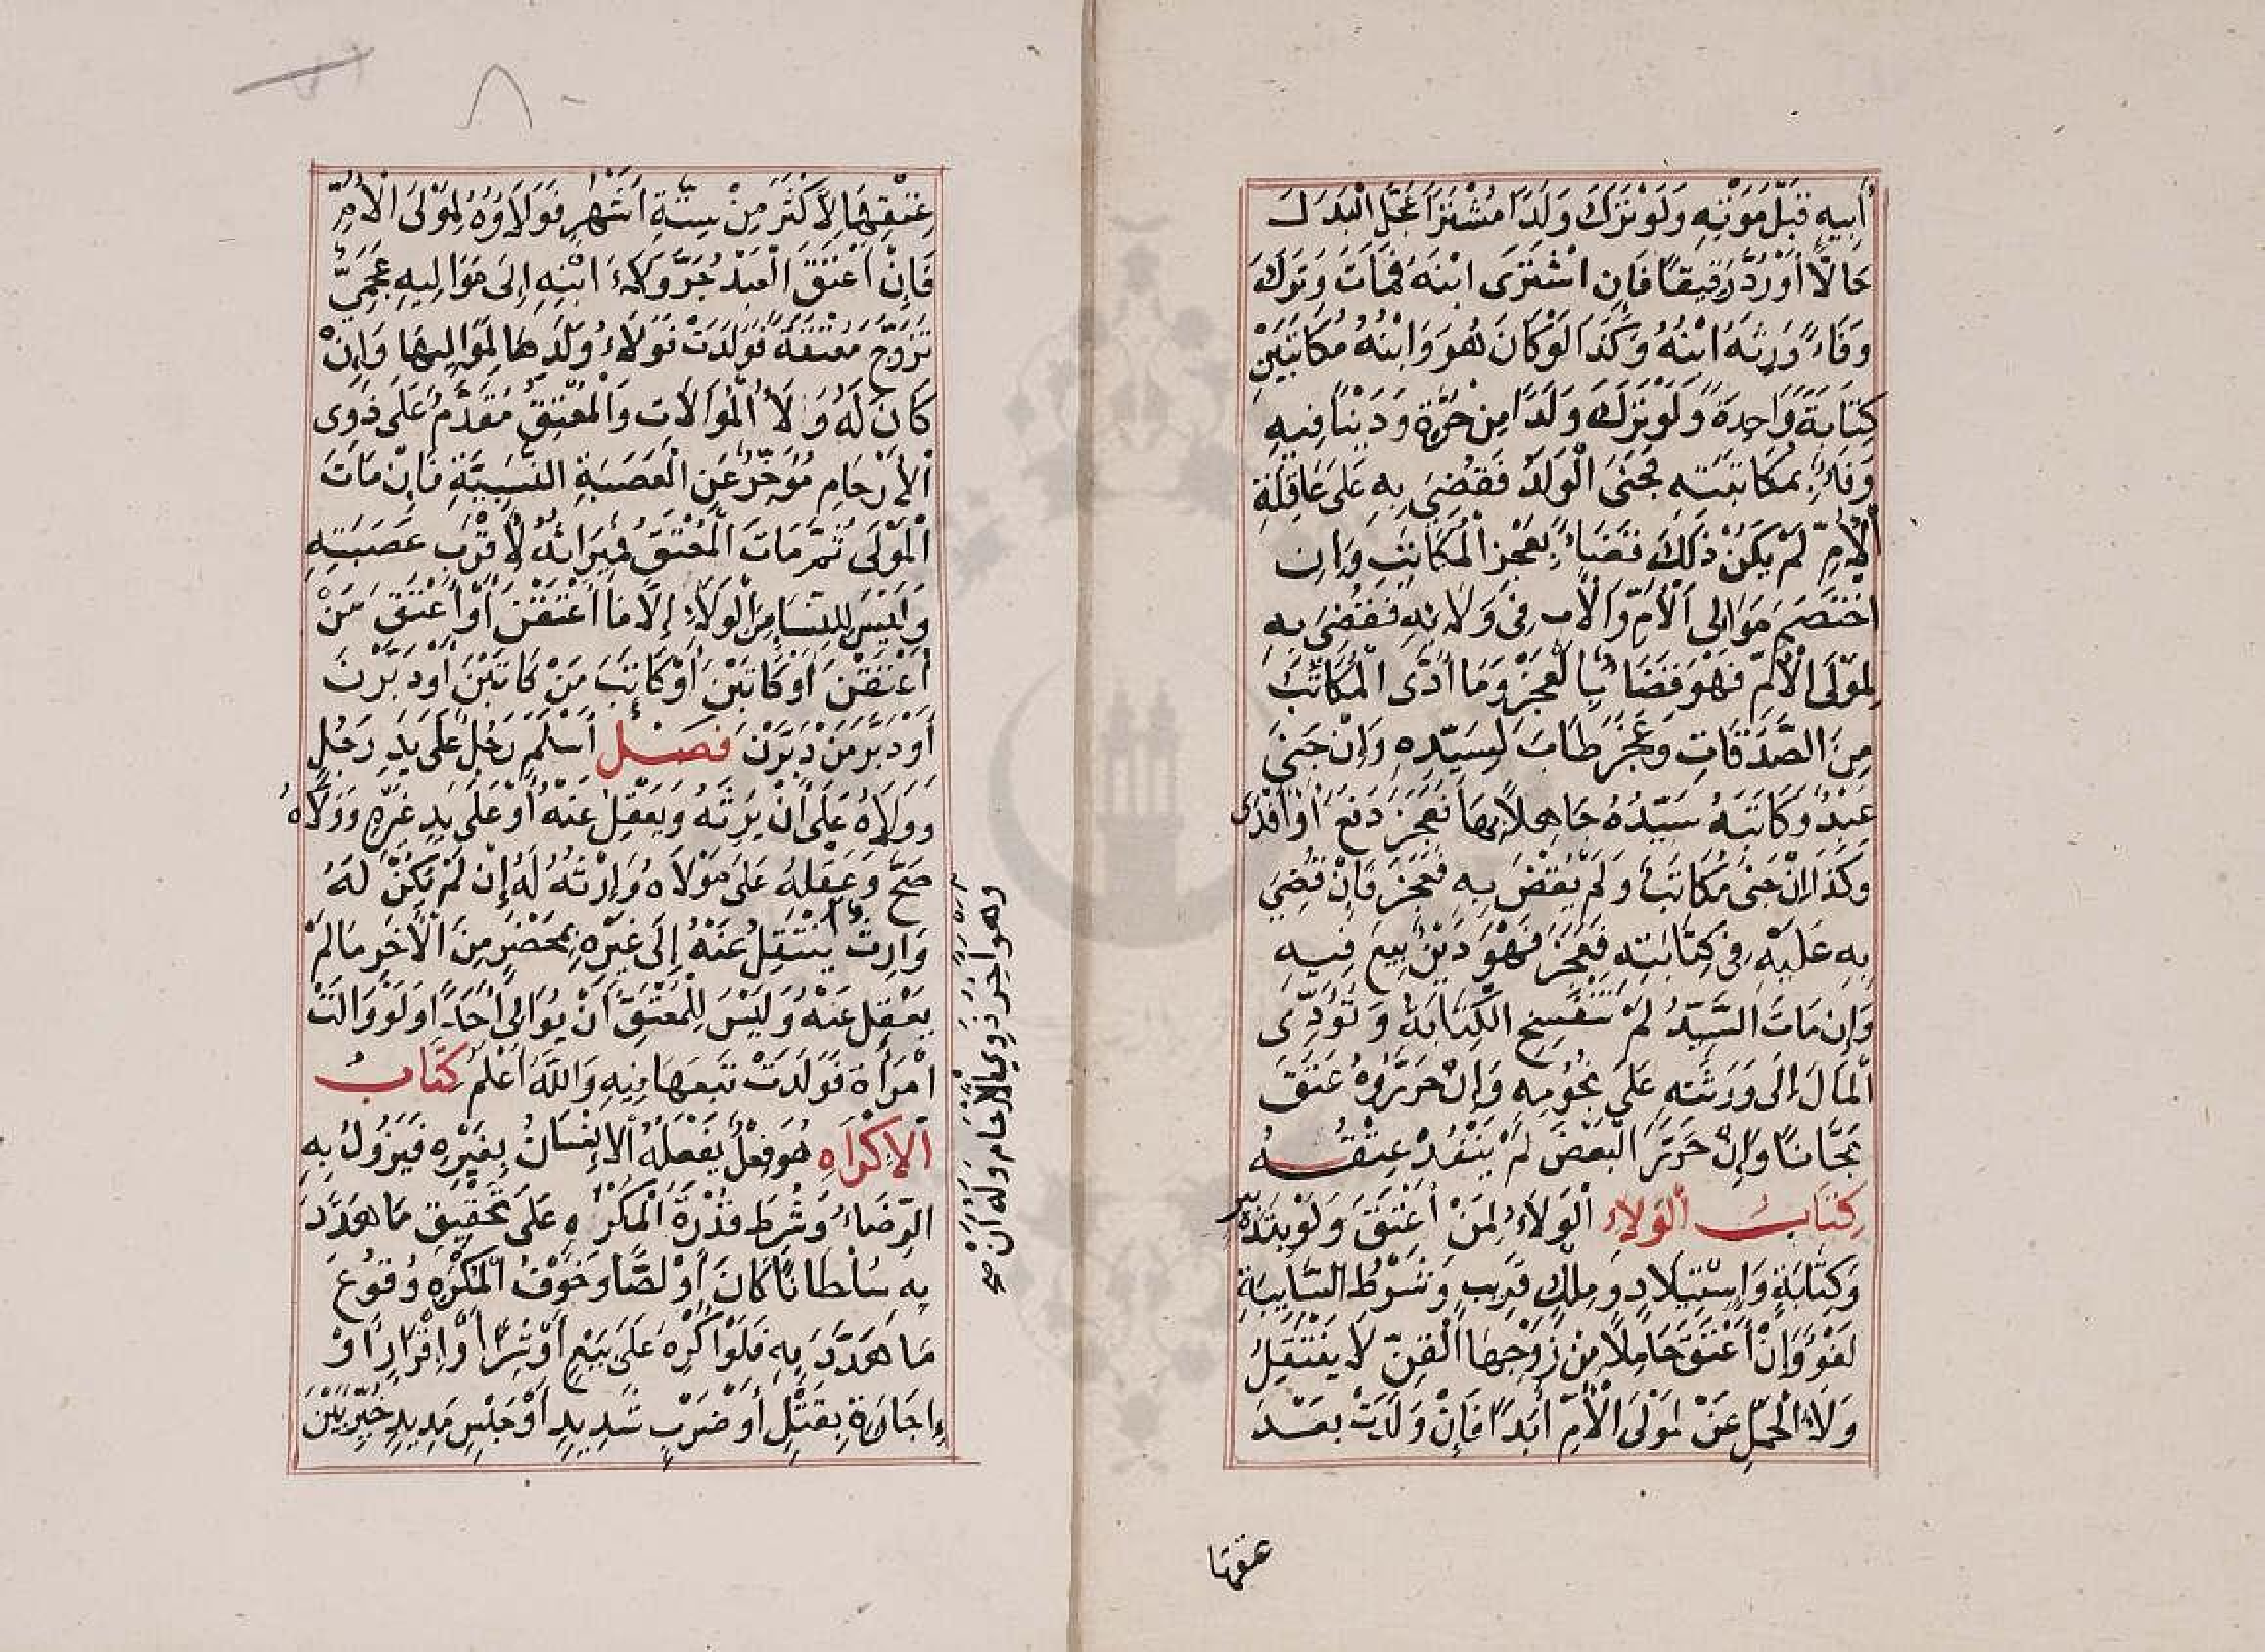 أَبِيهِ قَبْلَ مَوْتِهِ وَلَوْ تَرَكَ وَلَدًا مُشْتَرًا عَجَّلَ الْبَدَلَ
حَالًّا أَوْ رُدَّ رَقِيقًا فَإِنِ اشْتَرَى ابْنَهُ فَمَاتَ وَتَرَكَ
وَفَاءً وَرِثَهُ ابْنُهُ وَكَذَا لَوْ كَانَ هُوَ وَابْنُهُ مُكَاتَبَيْنِ
كِتَابَةً وَاحِدَةً وَلَوْ تَرَكَ وَلَدًا مِنْ حُرَّةٍ وَدَيْنًا فِيهِ
وَفَاءٌ بِمُكَاتَبَتِهِ فَجَنَى الْوَلَدُ فَقُضِيَ بِهِ عَلَى عَاقِلَةِ
الْأُمِّ لَمْ يَكُنْ ذَلِكَ قَضَاءً بِعَجْزِ الْمُكَاتَبِ وَإِنِ
اخْتَصَمَ مَوَالِي الْأُمِّ وَالْأَبِ فِي وَلَائِهِ فَقُضِيَ بِهِ
لِمَوْلَى الْأُمِّ فَهُوَ قَضَاءٌ بِالْعَجْزِ وَمَا أَدَّى الْمُكَاتَبُ
مِنَ الصَّدَقَاتِ وَعَجَزَ طَابَ لِسَيِّدِهِ وَإِنْ جَنَى
عَبْدٌ وَكَاتَبَهُ سَيِّدُهُ جَاهِلًا بِهَا فَعَجَزَ دَفَعَ أَوْ أَفْدَى
وَكَذَا إِنْ جَنَى مُكَاتَبٌ وَلَمْ يُقْضَ بِهِ فَعَجَزَ فَإِنْ قُضِيَ
بِهِ عَلَيْهِ فِي كِتَابَتِهِ فَعَجَزَ فَهُوَ دَيْنٌ بِيعَ فِيهِ
وَإِنْ مَاتَ السَّيِّدُ لَمْ تَنْفَسِخِ الْكِتَابَةُ وَتُؤَدِّى
الْمَالَ إِلَى وَرَثَتِهِ عَلَى نُجُومِهِ وَإِنْ حَرَّرُوهُ عَتَقَ
مَجَّانًا وَإِنْ حَرَّرَ الْبَعْضَ لَمْ يَنْفُذْ عِتْقُهُ
كِتَابُ الْوَلَاءِ الْوَلَاءُ لِمَنْ أَعْتَقَ وَلَوْ بِتَدْبِيرٍ
وَكِتَابَةٍ وَاسْتِيلَادٍ وَمِلْكِ قَرِيبٍ وَشَرْطُ السَّايِبَةِ
لَغْوٌ وَإِنْ أَعْتَقَ حَامِلًا مِنْ زَوْجِهَا الْقِنِّ لَا يَنْتَقِلُ
وَلَاءُ الْحَمْلِ عَنْ مَوْلَى الْأُمِّ أَبَدًا فَإِنْ وَلَدَتْ بَعْدَ
عتقها
عِتْقِهَا لِأَكْثَرَ مِنْ سِتَّةِ أَشْهُرٍ فَوَلَاؤُهُ لِمَوْلَى الْأُمِّ
فَإِنْ أَعْتَقَ الْعَبْدَ جَرَّ وَلَاءَ ابْنِهِ إِلَى مَوَالِيهِ عَجَمِيٌّ
تَزَوَّجَ مُعْتَقَةً فَوَلَدَتْ فَوَلَاءُ وَلَدِهَا لِمَوَالِيهَا وَإِنْ
كَانَ لَهُ وَلَاءُ الْمُوَالَاتِ وَالْمُعْتِقُ مُقَدَّمٌ عَلَى ذَوِى
الْأَرْحَامِ مُؤَخَّرٌ عَنِ الْعَصَبَةِ النَّسَبِيَّةِ فَإِنْ مَاتَ
الْمَوْلَى ثُمَّ مَاتَ الْمُعْتَقُ فَمِيرَاثُهُ لِأَقْرَبِ عَصَبَتِهِ
وَلَيْسَ لِلنِّسَاءِ مِنَ الْوَلَاءِ إِلَّا مَا أَعْتَقْنَ أَوْ أَعْتَقَ مَنْ
أَعْتَقْنَ أَوْ كَاتَبْنَ أَوْ كَاتَبَ مَنْ كَاتَبْنَ أَوْ دَبَّرْنَ
أَوْ دَبَّرَ مَنْ دَبَّرْنَ فَصْلٌ أَسْلَمَ رَجُلٌ عَلَى يَدِ رَجُلٍ
وَوَالَاهُ عَلَى أَنْ يَرِثَهُ وَيَعْقِلَ عَنْهُ أَوْ عَلَى يَدِ غَيْرِهِ وَوَالَاهُ
صَحَّ وَعَقْلُهُ عَلَى مَوْلَاهُ وَإِرْثُهُ لَهُ إِنْ لَمْ يَكُنْ لَهُ
وَارِثٌ يَنْتَقِلُ عَنْهُ إِلَى غَيْرِهِ بِمَحْضَرٍ مِنَ الْآخَرِ مَا لَمْ
يَعْقِلْ عَنْهُ وَلَيْسَ لِلْمُعْتَقِ أَنْ يُوَالِيَ أَحَدًا وَلَوْ وَالَتْ
امْرَأَةٌ فَوَلَدَتْ تَبِعَهَا فِيهِ وَاللَّهُ أَعْلَمُ كِتَابُ
الْإِكْرَاهِ هُوَ فِعْلٌ يَفْعَلُهُ الْإِنْسَانُ بِغَيْرِهِ فَيَزُولُ بِهِ
الرِّضَاءُ وَشُرِطَ قُدْرَةُ الْمُكْرِهِ عَلَى تَحْقِيقِ مَا هَدَّدَ
بِهِ سُلْطَانًا كَانَ أَوْ لِصًّا وَخَوْفُ الْمُكْرَهِ وُقُوعَ
مَا هَدَّدَ بِهِ فَلَوْ أُكْرِهَ عَلَى بَيْعٍ أَوْ شِرَاءٍ أَوْ إِقْرَارٍ أَوْ
إِجَارَةٍ بِقَتْلٍ أَوْ ضَرْبٍ شَدِيدٍ أَوْ حَبْسٍ مَدِيدٍ خُيِّرَ بَيْنَ
وهو آخر ذوي الأرحام وله أن صح